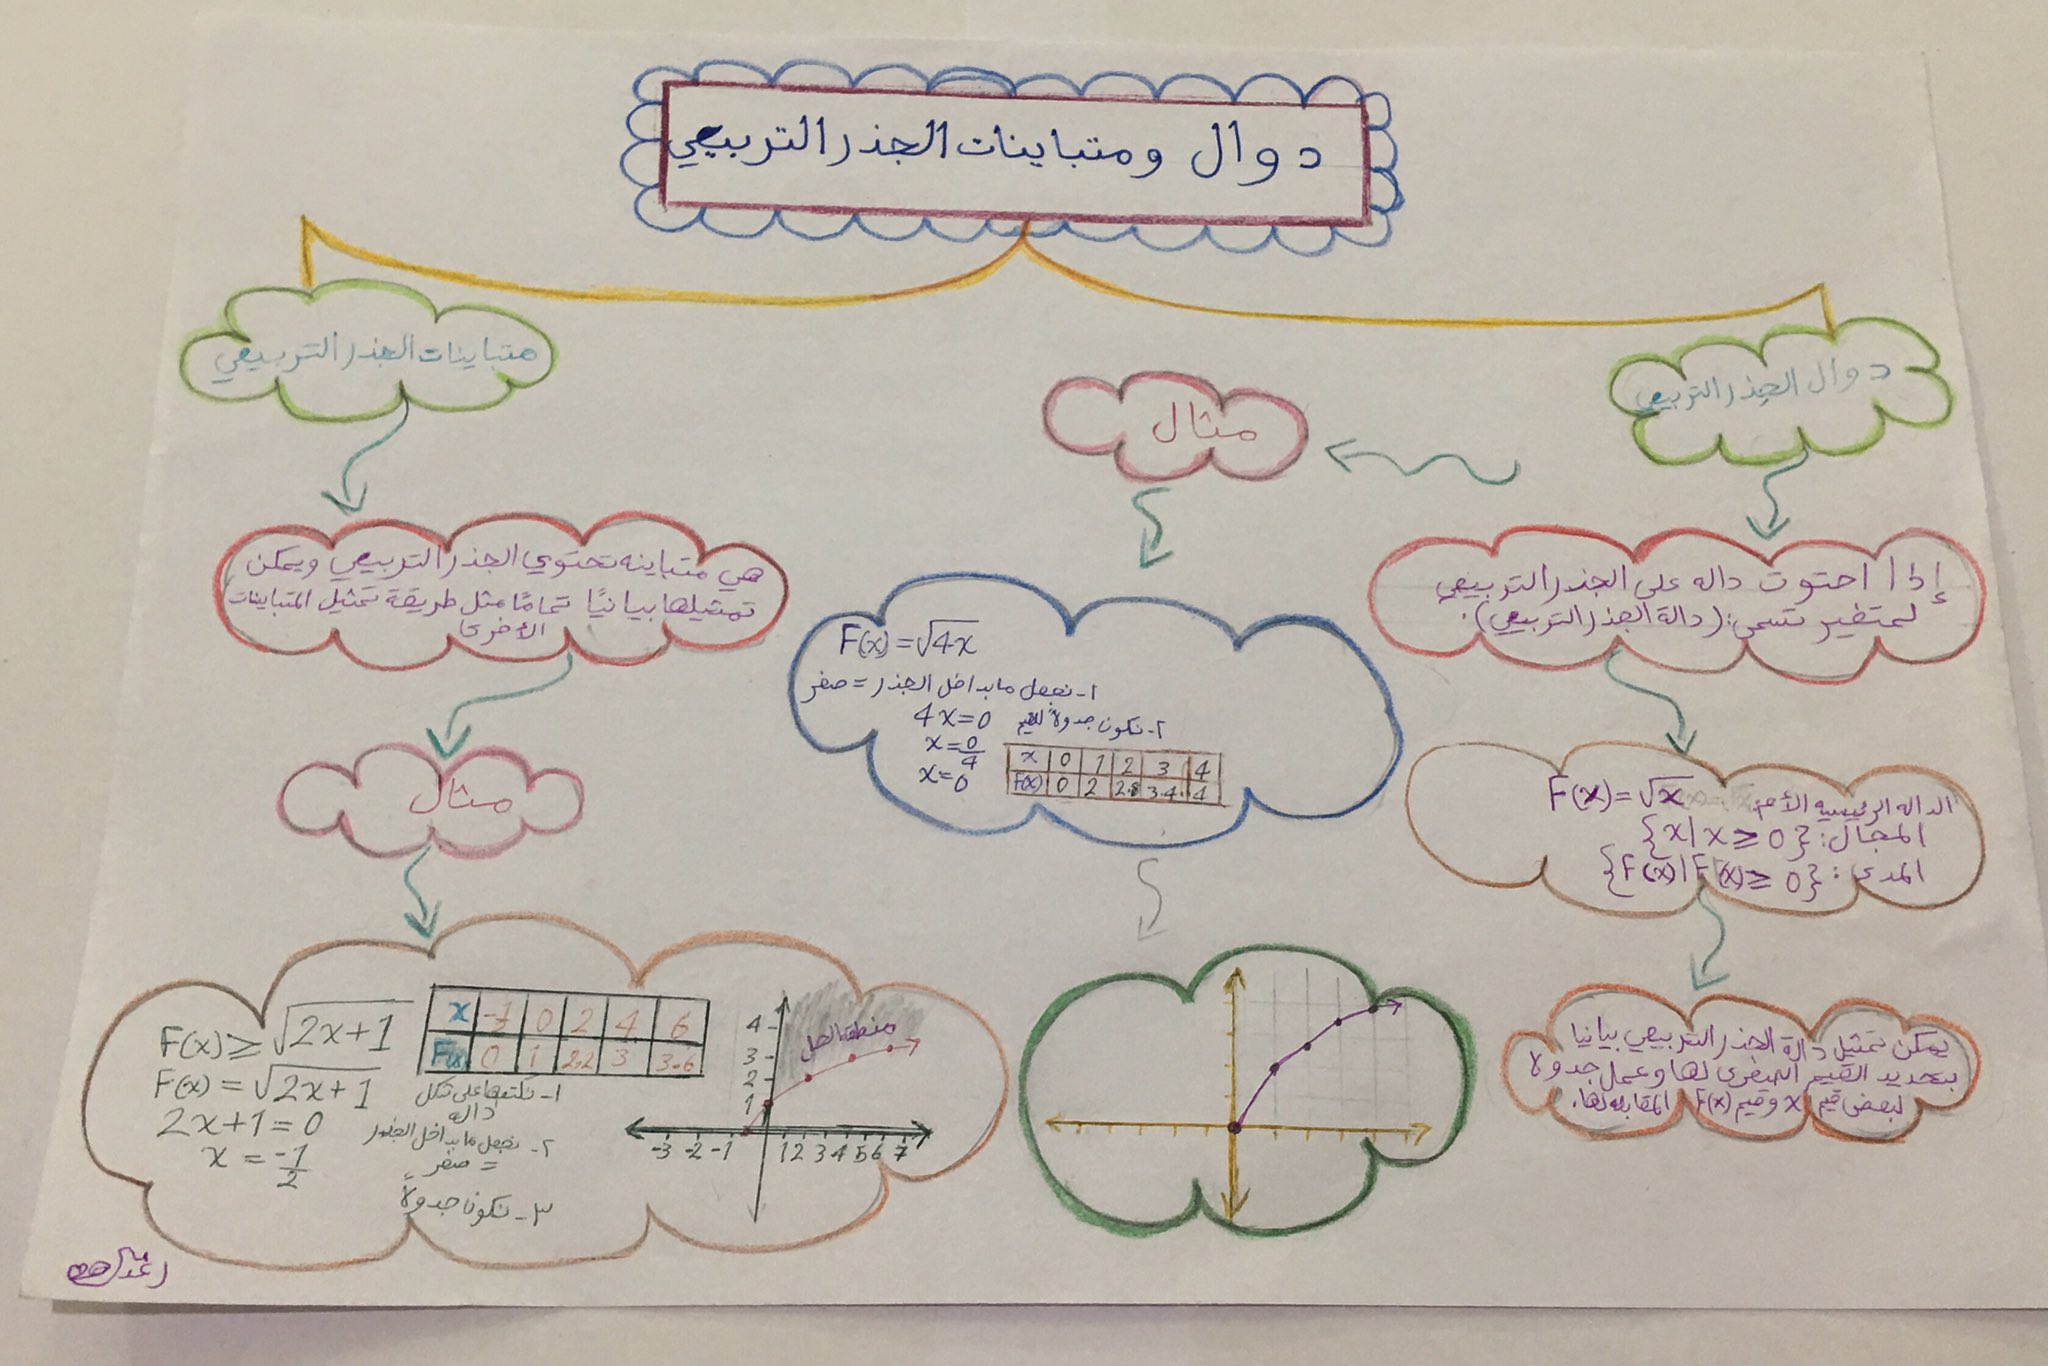 دوال ومتباينات الجذر التربيعي
دوال الجذر التربيعي
إذا احتوت داله على الجذر التربيعي
لمتغير تسمى: (دالة الجذر التربيعي).
الداله الرئيسيه الأم: F(x)=√x
المجال: {x|x≥0}
المدى: {F(x)|F(x)≥0}
يمكن تمثيل دالة الجذر التربيعي بيانيا
بتحديد القيم الصغرى لها وعمل جدولا
لبعض قيم x وقيم F(x) المقابله لها.
مثال
F(x)=√4x
١- نجعل ما بداخل الجذر = صفر
4x=0
٢- نكون جدولاً للقيم
x=0/4
x=0
x 0 1 2 3 4
F(x) 0 2 2.8 3.4 4
متباينات الجذر التربيعي
هي متباينه تحتوي الجذر التربيعي ويمكن
تمثيلها بيانيًا تمامًا مثل طريقة تمثيل المتباينات
الأخرى
مثال
F(x)≥√2x+1
F(x)=√2x+1
2x+1=0
x=-1/2
x -½ 0 2 4 6
F(x) 0 1 2.2 3 3.6
١- نكتبها على شكل
داله
٢- نجعل ما بداخل الجذر
= صفر
٣- نكون جدولاً
منطقة الحل
4
3
2
1
-3 -2 -1 1 2 3 4 5 6 7